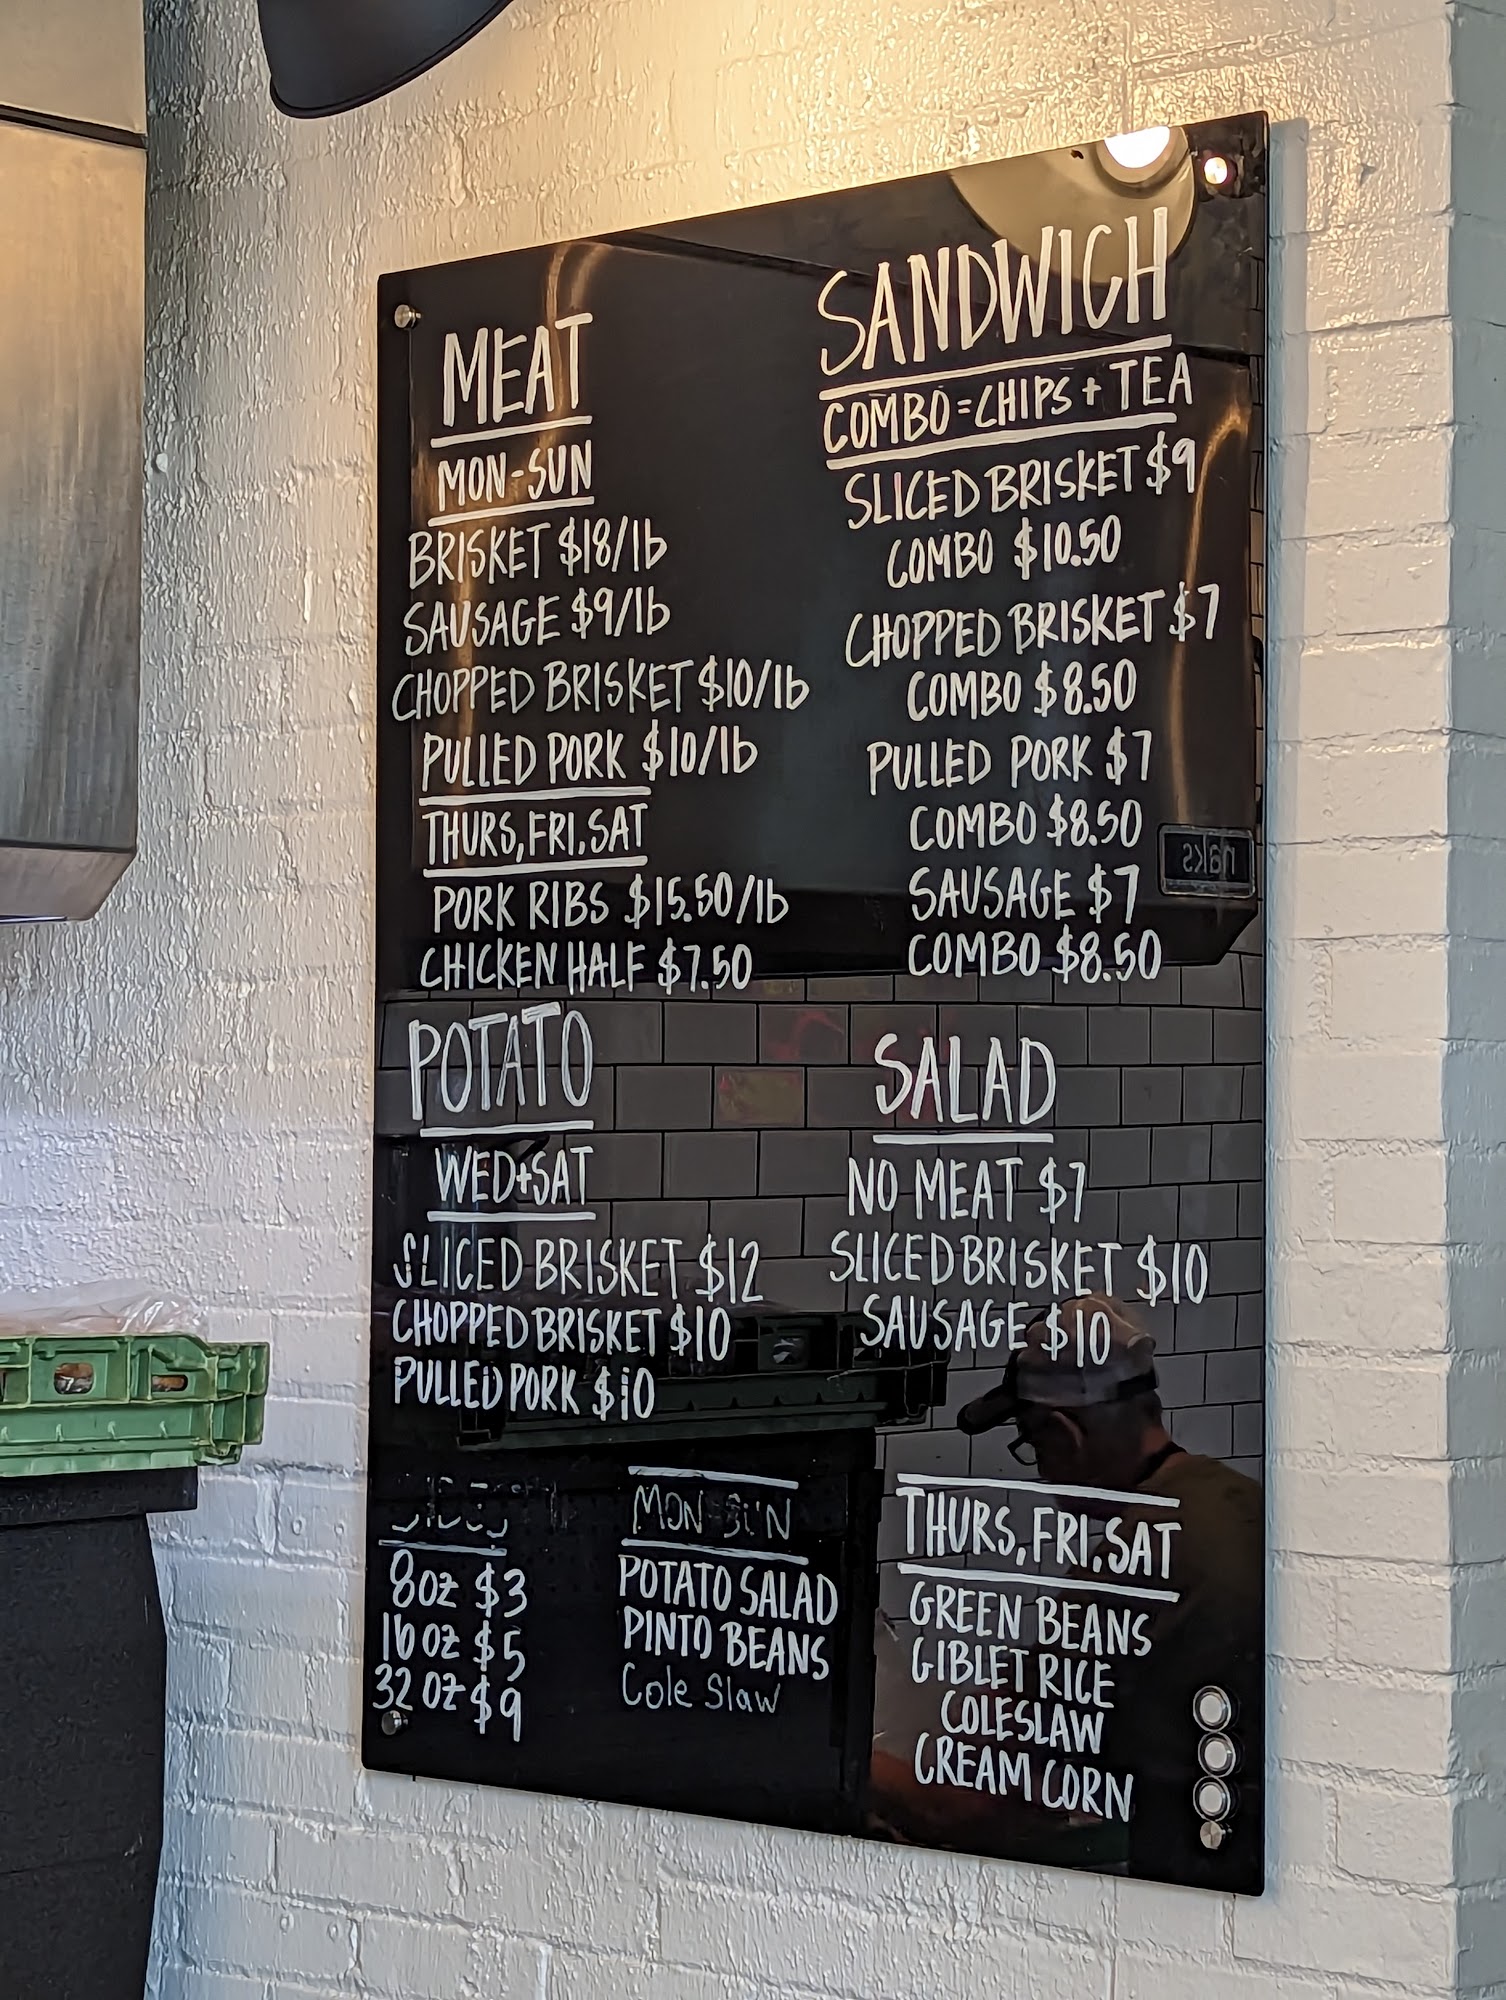 MEAT
MON-SUN
BRISKET $18/lb
SAUSAGE $9/lb
CHOPPED BRISKET $10/lb
PULLED PORK $10/lb
THURS, FRI, SAT
PORK RIBS $15.50/lb
CHICKEN HALF $7.50
SANDWICH
COMBO=CHIPS + TEA
SLICED BRISKET $9
COMBO $10.50
CHOPPED BRISKET $7
COMBO $8.50
PULLED PORK $7
COMBO $8.50
SAUSAGE $7
COMBO $8.50
POTATO
WED+SAT
SLICED BRISKET $12
CHOPPED BRISKET $10
PULLED PORK $10
SALAD
NO MEAT $7
SLICED BRISKET $10
SAUSAGE $10
8oz $3
16oz $5
32oz $9
MON-SUN
POTATO SALAD
PINTO BEANS
Cole Slaw
THURS, FRI, SAT
GREEN BEANS
GIBLET RICE
COLESLAW
CREAM CORN